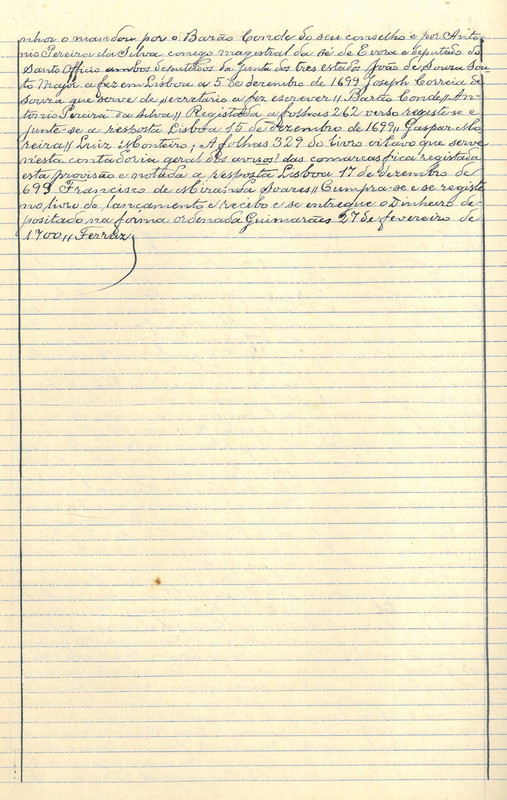 nhor o mandou por o Barão Conde do seu conselho e por Anto-
nio Pereira da Silva conego magistral da Sé de Evora e deputado do
Santo Officio ambos deputados da junta dos tres estados João de Souza Sou
to Major a fez em Lisboa a 5 de dezembro de 1699 Joseph Correia de
Souza que serve de secretario a fez escrever // Barão Conde // An-
tonio Pereira da Silva // Registada a folhas 262 verso registe-se e
junte-se a resposta Lisboa 15 de dezembro de 1699 // Gaspar Mo
reira // Luiz Monteiro, A folhas 329 do livro oitavo que serve
nesta contadoria geral dos avisos das comarcas fica registada
esta provisão e notada a resposta Lisboa 17 de dezembro de
699 Francisco de Miranda Soares // Cumpra-se e se registe
no livro do lançamento e recibo e se entregue o Dinheiro de-
positado na forma ordenada Guimarães 27 de fevereiro de
1700 // Ferraz